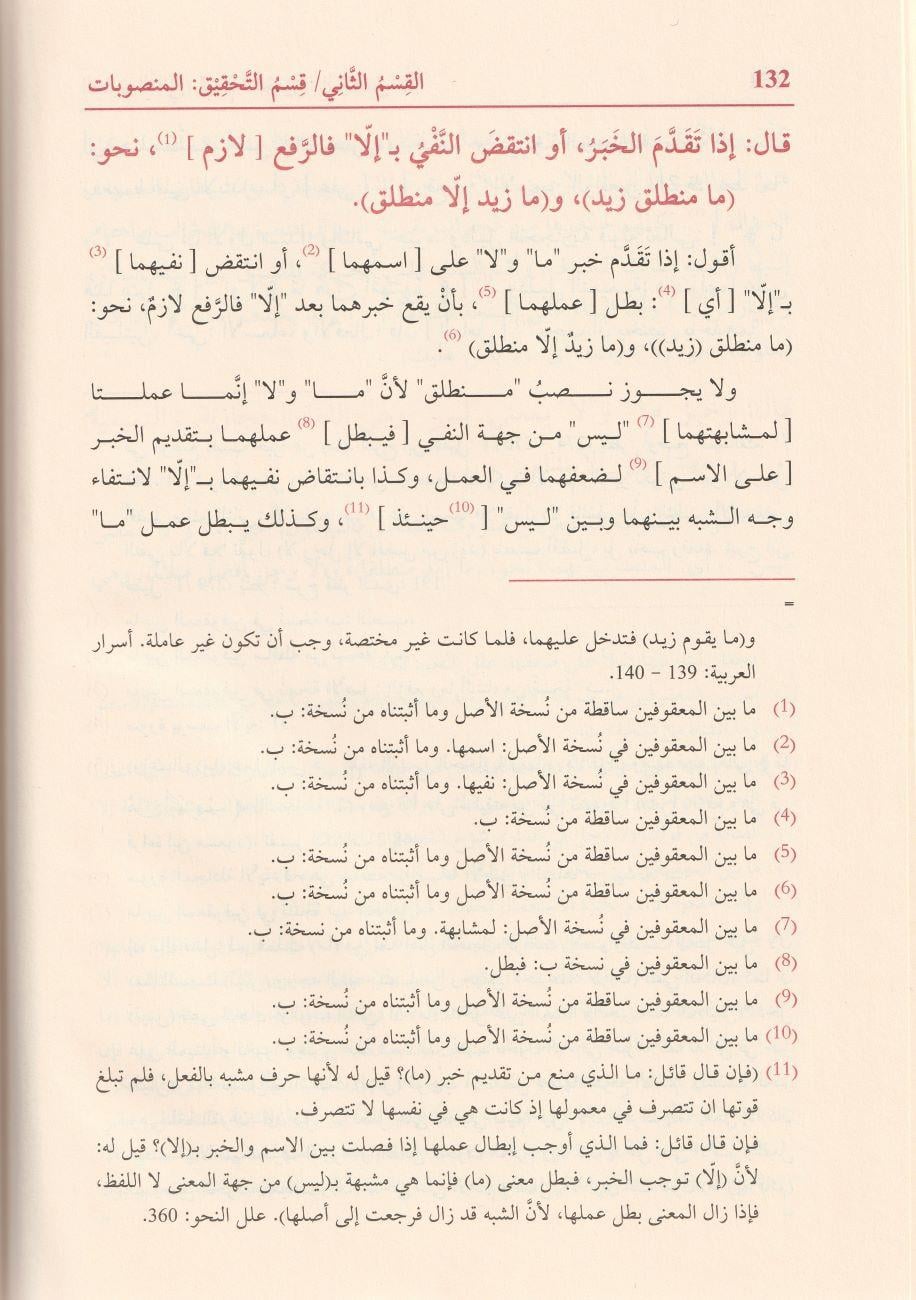 132
القِسْمُ الثَّانِي/ قِسْمُ التَّحْقِيْق: المنصوبات
قال: إذا تَقَدَّمَ الخَبَرُ، أو انتقضَ النَّفْيُ بـ"إلّا" فالرَّفع [ لازم ] (1)، نحو:
(ما منطلق زيد)، و(ما زيد إلّا منطلق).
أقول: إذا تَقَدَّم خبر "ما" و"لا" على [ اسمهما ] (2)، أو انتقض [ نفيهما ] (3)
بـ"إلّا" [ أي ] (4): بطل [ عملهما ] (5)، بأنْ يقع خبرهما بعد "إلّا" فالرَّفع لازمٌ، نحو:
(ما منطلق (زيد))، و(ما زيدٌ إلّا منطلق) (6).
ولا يجوز نصبُ "منطلق" لأنَّ "ما" و"لا" إنَّما عملتا
[ لمشابهتهما ] (7) "ليس" من جهة النفي [ فيبطل ] (8) عملهما بتقديم الخبر
[ على الاسم ] (9) لضعفهما في العمل، وكذا بانتقاض نفيهما بـ"إلّا" لانتفاء
وجه الشبه بينهما وبين "ليس" [ (10) حينئذ ] (11)، وكذلك يبطل عمل "ما"
=
و(ما يقوم زيد) فتدخل عليهما، فلما كانت غير مختصة، وجب أن تكون غير عاملة. أسرار
العربية: 139 – 140.
(1) ما بين المعقوفين ساقطة من نُسخة الأصل وما أثبتناه من نُسخة: ب.
(2) ما بين المعقوفين في نُسخة الأصل: اسمها. وما أثبتناه من نُسخة: ب.
(3) ما بين المعقوفين في نُسخة الأصل: نفيها. وما أثبتناه من نُسخة: ب.
(4) ما بين المعقوفين ساقطة من نُسخة: ب.
(5) ما بين المعقوفين ساقطة من نُسخة الأصل وما أثبتناه من نُسخة: ب.
(6) ما بين المعقوفين ساقطة من نُسخة الأصل وما أثبتناه من نُسخة: ب.
(7) ما بين المعقوفين في نُسخة الأصل: لمشابهة. وما أثبتناه من نسخة: ب.
(8) ما بين المعقوفين في نسخة ب: فبطل.
(9) ما بين المعقوفين ساقطة من نُسخة الأصل وما أثبتناه من نُسخة: ب.
(10) ما بين المعقوفين ساقطة من نُسخة الأصل وما أثبتناه من نُسخة: ب.
(11) (فإن قال قائل: ما الذي منع من تقديم خبر (ما)؟ قيل له لأنها حرف مشبه بالفعل، فلم تبلغ
قوتها ان تتصرف في معمولها إذ كانت هي في نفسها لا تتصرف.
فإن قال قائل: فما الذي أوجب إبطال عملها إذا فصلت بين الاسم والخبر بـ(إلا)؟ قيل له:
لأنَّ (إلّا) توجب الخبر، فبطل معنى (ما) فإنما هي مشبهة بـ(ليس) من جهة المعنى لا اللفظ،
فإذا زال المعنى بطل عملها، لأنَّ الشبه قد زال فرجعت إلى أصلها). علل النحو: 360.